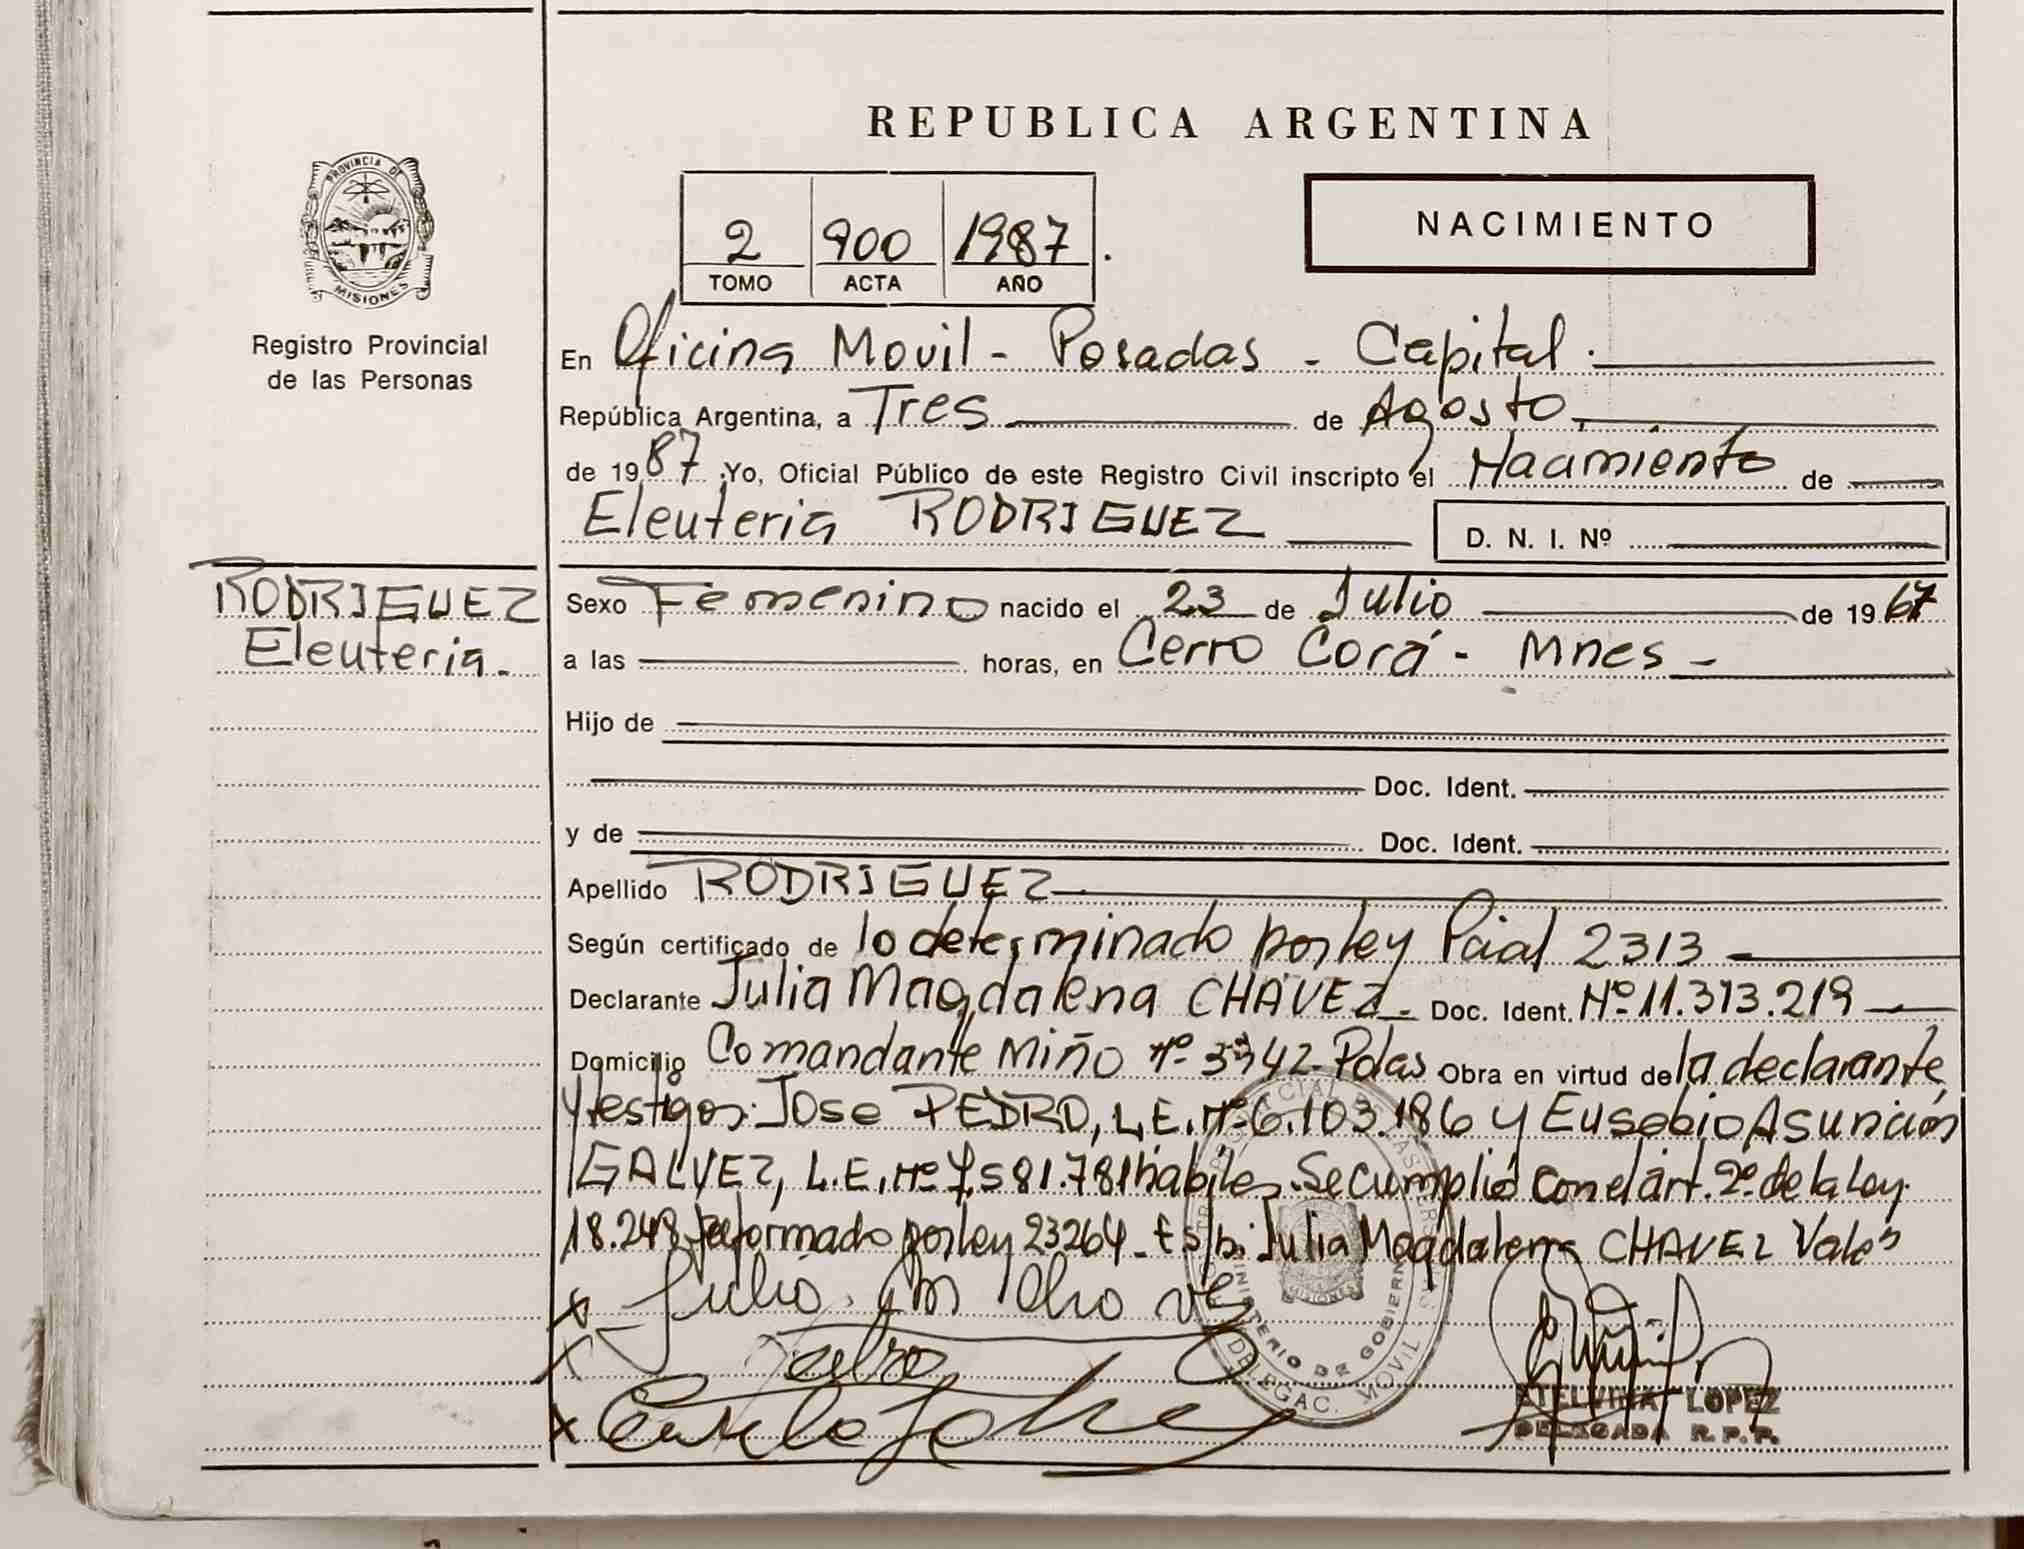 REPUBLICA ARGENTINA
PROVINCIA DE
MISIONES
Registro Provincial
de las Personas
2 900 1987
TOMO ACTA AÑO
NACIMIENTO
En Oficina Movil - Posadas - Capital.
República Argentina, a Tres de Agosto
de 1987 Yo, Oficial Público de este Registro Civil inscripto el Nacimiento de
Eleuteria RODRIGUEZ D. N. I. Nº
RODRIGUEZ
Eleuteria.-
Sexo Femenino nacido el 23 de Julio de 1967
a las horas, en Cerro Corá - Mnes -
Hijo de
Doc. Ident.
y de Doc. Ident.
Apellido RODRIGUEZ
Según certificado de lo determinado por ley Pcial 2313
Declarante Julia Magdalena CHAVEZ.- Doc. Ident. Nº 11.373.219
Domicilio Comandante Miño Nº 3342- Pdas Obra en virtud de la declarante
y testigos: Jose PEDRO, L.E. Nº 6.103.186 y Eusebio Asunción
GALVEZ, L.E. Nº 7.581.781 habiles. Se cumplió con el art. 2º de la Ley
18.248 reformado por ley 23264 - E s/b: Julia Magdalena CHAVEZ Vale
MINISTERIO DE GOBIERNO
MISIONES
DELEGAC. MOVIL
ETELVINA LOPEZ
DELEGADA R.P.P.